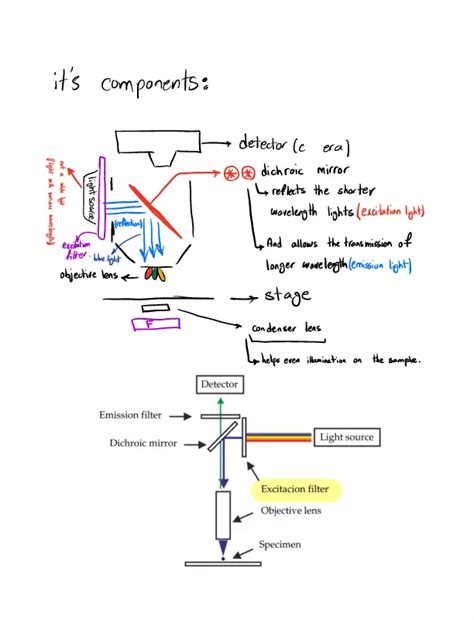 it's components:
detector (c era)
dichroic mirror
reflects the shorter
wavelength lights (excitation light)
And allows the transmission of
longer wavelength (emission light)
light source
(reflection)
excitation
filter
blue light
objective lens
stage
F
condenser lens
helps even illumination on the sample.
Detector
Emission filter
Dichroic mirror
Light source
Excitacion filter
Objective lens
Specimen